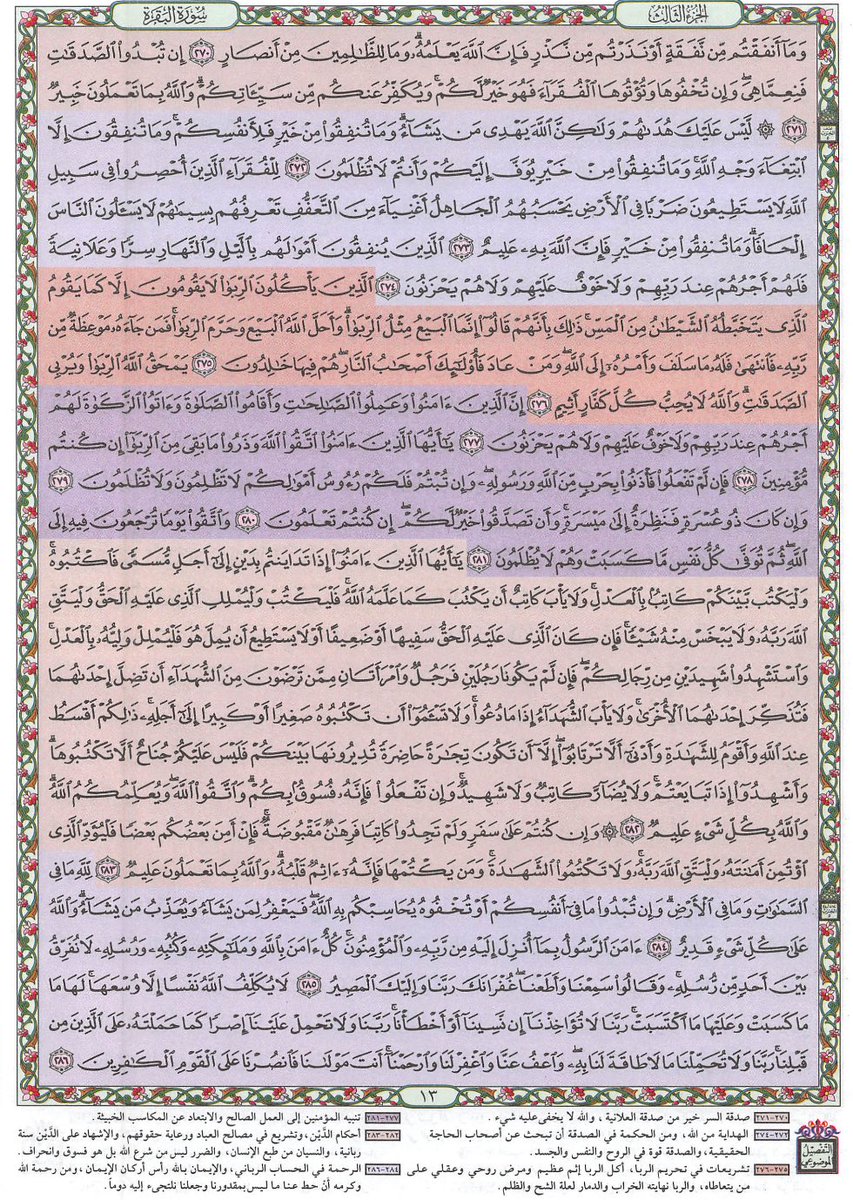 الجزء الثالث
سورة البقرة
وَمَا أَنفَقْتُم مِّن نَّفَقَةٍ أَوْ نَذَرْتُم مِّن نَّذْرٍ فَإِنَّ ٱللَّهَ يَعْلَمُهُۥ ۗ وَمَا لِلظَّٰلِمِينَ مِنْ أَنصَارٍ ٢٧٠ إِن تُبْدُوا۟ ٱلصَّدَقَٰتِ
فَنِعِمَّا هِىَ ۖ وَإِن تُخْفُوهَا وَتُؤْتُوهَا ٱلْفُقَرَآءَ فَهُوَ خَيْرٌ لَّكُمْ ۚ وَيُكَفِّرُ عَنكُم مِّن سَيِّـَٔاتِكُمْ ۗ وَٱللَّهُ بِمَا تَعْمَلُونَ خَبِيرٌ
٢٧١ ۞ لَّيْسَ عَلَيْكَ هُدَىٰهُمْ وَلَٰكِنَّ ٱللَّهَ يَهْدِى مَن يَشَآءُ ۗ وَمَا تُنفِقُوا۟ مِنْ خَيْرٍ فَلِأَنفُسِكُمْ ۚ وَمَا تُنفِقُونَ إِلَّا
ٱبْتِغَآءَ وَجْهِ ٱللَّهِ ۚ وَمَا تُنفِقُوا۟ مِنْ خَيْرٍ يُوَفَّ إِلَيْكُمْ وَأَنتُمْ لَا تُظْلَمُونَ ٢٧٢ لِلْفُقَرَآءِ ٱلَّذِينَ أُحْصِرُوا۟ فِى سَبِيلِ
ٱللَّهِ لَا يَسْتَطِيعُونَ ضَرْبًا فِى ٱلْأَرْضِ يَحْسَبُهُمُ ٱلْجَاهِلُ أَغْنِيَآءَ مِنَ ٱلتَّعَفُّفِ تَعْرِفُهُم بِسِيمَٰهُمْ لَا يَسْـَٔلُونَ ٱلنَّاسَ
إِلْحَافًا ۗ وَمَا تُنفِقُوا۟ مِنْ خَيْرٍ فَإِنَّ ٱللَّهَ بِهِۦ عَلِيمٌ ٢٧٣ ٱلَّذِينَ يُنفِقُونَ أَمْوَٰلَهُم بِٱلَّيْلِ وَٱلنَّهَارِ سِرًّا وَعَلَانِيَةً
فَلَهُمْ أَجْرُهُمْ عِندَ رَبِّهِمْ وَلَا خَوْفٌ عَلَيْهِمْ وَلَا هُمْ يَحْزَنُونَ ٢٧٤ ٱلَّذِينَ يَأْكُلُونَ ٱلرِّبَوٰا۟ لَا يَقُومُونَ إِلَّا كَمَا يَقُومُ
ٱلَّذِى يَتَخَبَّطُهُ ٱلشَّيْطَٰنُ مِنَ ٱلْمَسِّ ۚ ذَٰلِكَ بِأَنَّهُمْ قَالُوٓا۟ إِنَّمَا ٱلْبَيْعُ مِثْلُ ٱلرِّبَوٰا۟ ۗ وَأَحَلَّ ٱللَّهُ ٱلْبَيْعَ وَحَرَّمَ ٱلرِّبَوٰا۟ ۚ فَمَن جَآءَهُۥ مَوْعِظَةٌ مِّن
رَّبِّهِۦ فَٱنتَهَىٰ فَلَهُۥ مَا سَلَفَ وَأَمْرُهُۥٓ إِلَى ٱللَّهِ ۖ وَمَنْ عَادَ فَأُو۟لَٰٓئِكَ أَصْحَٰبُ ٱلنَّارِ ۖ هُمْ فِيهَا خَٰلِدُونَ ٢٧٥ يَمْحَقُ ٱللَّهُ ٱلرِّبَوٰا۟ وَيُرْبِى
ٱلصَّدَقَٰتِ ۗ وَٱللَّهُ لَا يُحِبُّ كُلَّ كَفَّارٍ أَثِيمٍ ٢٧٦ إِنَّ ٱلَّذِينَ ءَامَنُوا۟ وَعَمِلُوا۟ ٱلصَّٰلِحَٰتِ وَأَقَامُوا۟ ٱلصَّلَوٰةَ وَءَاتَوُا۟ ٱلزَّكَوٰةَ لَهُمْ
أَجْرُهُمْ عِندَ رَبِّهِمْ وَلَا خَوْفٌ عَلَيْهِمْ وَلَا هُمْ يَحْزَنُونَ ٢٧٧ يَٰٓأَيُّهَا ٱلَّذِينَ ءَامَنُوا۟ ٱتَّقُوا۟ ٱللَّهَ وَذَرُوا۟ مَا بَقِىَ مِنَ ٱلرِّبَوٰٓا۟ إِن كُنتُم
مُّؤْمِنِينَ ٢٧٨ فَإِن لَّمْ تَفْعَلُوا۟ فَأْذَنُوا۟ بِحَرْبٍ مِّنَ ٱللَّهِ وَرَسُولِهِۦ ۖ وَإِن تُبْتُمْ فَلَكُمْ رُءُوسُ أَمْوَٰلِكُمْ لَا تَظْلِمُونَ وَلَا تُظْلَمُونَ ٢٧٩
وَإِن كَانَ ذُو عُسْرَةٍ فَنَظِرَةٌ إِلَىٰ مَيْسَرَةٍ ۚ وَأَن تَصَدَّقُوا۟ خَيْرٌ لَّكُمْ ۖ إِن كُنتُمْ تَعْلَمُونَ ٢٨٠ وَٱتَّقُوا۟ يَوْمًا تُرْجَعُونَ فِيهِ إِلَى
ٱللَّهِ ۖ ثُمَّ تُوَفَّىٰ كُلُّ نَفْسٍ مَّا كَسَبَتْ وَهُمْ لَا يُظْلَمُونَ ٢٨١ يَٰٓأَيُّهَا ٱلَّذِينَ ءَامَنُوٓا۟ إِذَا تَدَايَنتُم بِدَيْنٍ إِلَىٰٓ أَجَلٍ مُّسَمًّى فَٱكْتُبُوهُ ۚ
وَلْيَكْتُب بَّيْنَكُمْ كَاتِبٌۢ بِٱلْعَدْلِ ۚ وَلَا يَأْبَ كَاتِبٌ أَن يَكْتُبَ كَمَا عَلَّمَهُ ٱللَّهُ ۚ فَلْيَكْتُبْ وَلْيُمْلِلِ ٱلَّذِى عَلَيْهِ ٱلْحَقُّ وَلْيَتَّقِ
ٱللَّهَ رَبَّهُۥ وَلَا يَبْخَسْ مِنْهُ شَيْـًٔا ۚ فَإِن كَانَ ٱلَّذِى عَلَيْهِ ٱلْحَقُّ سَفِيهًا أَوْ ضَعِيفًا أَوْ لَا يَسْتَطِيعُ أَن يُمِلَّ هُوَ فَلْيُمْلِلْ وَلِيُّهُۥ بِٱلْعَدْلِ ۚ
وَٱسْتَشْهِدُوا۟ شَهِيدَيْنِ مِن رِّجَالِكُمْ ۖ فَإِن لَّمْ يَكُونَا رَجُلَيْنِ فَرَجُلٌ وَٱمْرَأَتَانِ مِمَّن تَرْضَوْنَ مِنَ ٱلشُّهَدَآءِ أَن تَضِلَّ إِحْدَىٰهُمَا
فَتُذَكِّرَ إِحْدَىٰهُمَا ٱلْأُخْرَىٰ ۚ وَلَا يَأْبَ ٱلشُّهَدَآءُ إِذَا مَا دُعُوا۟ ۚ وَلَا تَسْـَٔمُوٓا۟ أَن تَكْتُبُوهُ صَغِيرًا أَوْ كَبِيرًا إِلَىٰٓ أَجَلِهِۦ ۚ ذَٰلِكُمْ أَقْسَطُ
عِندَ ٱللَّهِ وَأَقْوَمُ لِلشَّهَٰدَةِ وَأَدْنَىٰٓ أَلَّا تَرْتَابُوٓا۟ ۖ إِلَّآ أَن تَكُونَ تِجَٰرَةً حَاضِرَةً تُدِيرُونَهَا بَيْنَكُمْ فَلَيْسَ عَلَيْكُمْ جُنَاحٌ أَلَّا تَكْتُبُوهَا ۗ
وَأَشْهِدُوٓا۟ إِذَا تَبَايَعْتُمْ ۚ وَلَا يُضَآرَّ كَاتِبٌ وَلَا شَهِيدٌ ۚ وَإِن تَفْعَلُوا۟ فَإِنَّهُۥ فُسُوقٌۢ بِكُمْ ۗ وَٱتَّقُوا۟ ٱللَّهَ ۖ وَيُعَلِّمُكُمُ ٱللَّهُ ۗ
وَٱللَّهُ بِكُلِّ شَىْءٍ عَلِيمٌ ٢٨٢ ۞ وَإِن كُنتُمْ عَلَىٰ سَفَرٍ وَلَمْ تَجِدُوا۟ كَاتِبًا فَرِهَٰنٌ مَّقْبُوضَةٌ ۖ فَإِنْ أَمِنَ بَعْضُكُم بَعْضًا فَلْيُؤَدِّ ٱلَّذِى
ٱؤْتُمِنَ أَمَٰنَتَهُۥ وَلْيَتَّقِ ٱللَّهَ رَبَّهُۥ ۗ وَلَا تَكْتُمُوا۟ ٱلشَّهَٰدَةَ ۚ وَمَن يَكْتُمْهَا فَإِنَّهُۥٓ ءَاثِمٌ قَلْبُهُۥ ۗ وَٱللَّهُ بِمَا تَعْمَلُونَ عَلِيمٌ ٢٨٣ لِّلَّهِ مَا فِى
ٱلسَّمَٰوَٰتِ وَمَا فِى ٱلْأَرْضِ ۗ وَإِن تُبْدُوا۟ مَا فِىٓ أَنفُسِكُمْ أَوْ تُخْفُوهُ يُحَاسِبْكُم بِهِ ٱللَّهُ ۖ فَيَغْفِرُ لِمَن يَشَآءُ وَيُعَذِّبُ مَن يَشَآءُ ۗ وَٱللَّهُ
عَلَىٰ كُلِّ شَىْءٍ قَدِيرٌ ٢٨٤ ءَامَنَ ٱلرَّسُولُ بِمَآ أُنزِلَ إِلَيْهِ مِن رَّبِّهِۦ وَٱلْمُؤْمِنُونَ ۚ كُلٌّ ءَامَنَ بِٱللَّهِ وَمَلَٰٓئِكَتِهِۦ وَكُتُبِهِۦ وَرُسُلِهِۦ لَا نُفَرِّقُ
بَيْنَ أَحَدٍ مِّن رُّسُلِهِۦ ۚ وَقَالُوا۟ سَمِعْنَا وَأَطَعْنَا ۖ غُفْرَانَكَ رَبَّنَا وَإِلَيْكَ ٱلْمَصِيرُ ٢٨٥ لَا يُكَلِّفُ ٱللَّهُ نَفْسًا إِلَّا وُسْعَهَا ۚ لَهَا مَا
كَسَبَتْ وَعَلَيْهَا مَا ٱكْتَسَبَتْ ۗ رَبَّنَا لَا تُؤَاخِذْنَآ إِن نَّسِينَآ أَوْ أَخْطَأْنَا ۚ رَبَّنَا وَلَا تَحْمِلْ عَلَيْنَآ إِصْرًا كَمَا حَمَلْتَهُۥ عَلَى ٱلَّذِينَ مِن
قَبْلِنَا ۚ رَبَّنَا وَلَا تُحَمِّلْنَا مَا لَا طَاقَةَ لَنَا بِهِۦ ۖ وَٱعْفُ عَنَّا وَٱغْفِرْ لَنَا وَٱرْحَمْنَآ ۚ أَنتَ مَوْلَىٰنَا فَٱنصُرْنَا عَلَى ٱلْقَوْمِ ٱلْكَٰفِرِينَ ٢٨٦
١٣
التفصيل الموضوعي
٢٧٠-٢٧١ صدقة السر خير من صدقة العلانية ، والله لا يخفى عليه شيء .
٢٧٢-٢٧٤ الهداية من الله، ومن الحكمة في الصدقة أن تبحث عن أصحاب الحاجة
الحقيقية، والصدقة قوة في الروح والنفس والجسد.
٢٧٥-٢٧٦ تشريعات في تحريم الربا، أكل الربا إثم عظيم ومرض روحي وعقلي على
من يتعاطاه، والربا نهايته الخراب والدمار لعلة الشح والظلم.
٢٧٧-٢٨١ تنبيه المؤمنين إلى العمل الصالح والابتعاد عن المكاسب الخبيثة .
٢٨٢-٢٨٣ أحكام الدَّيْن، وتشريع في مصالح العباد ورعاية حقوقهم، والإشهاد على الدَّيْن سنة
ربانية، والنسيان من طبع الإنسان، والضرر ليس من شرع الله بل هو فسوق وانحراف.
٢٨٤-٢٨٦ الرحمة في الحساب الرباني، والإيمان بالله رأس أركان الإيمان، ومن رحمة الله
وكرمه أنْ حط عنا ما ليس بمقدورنا وجعلنا نلتجىء إليه دوماً.